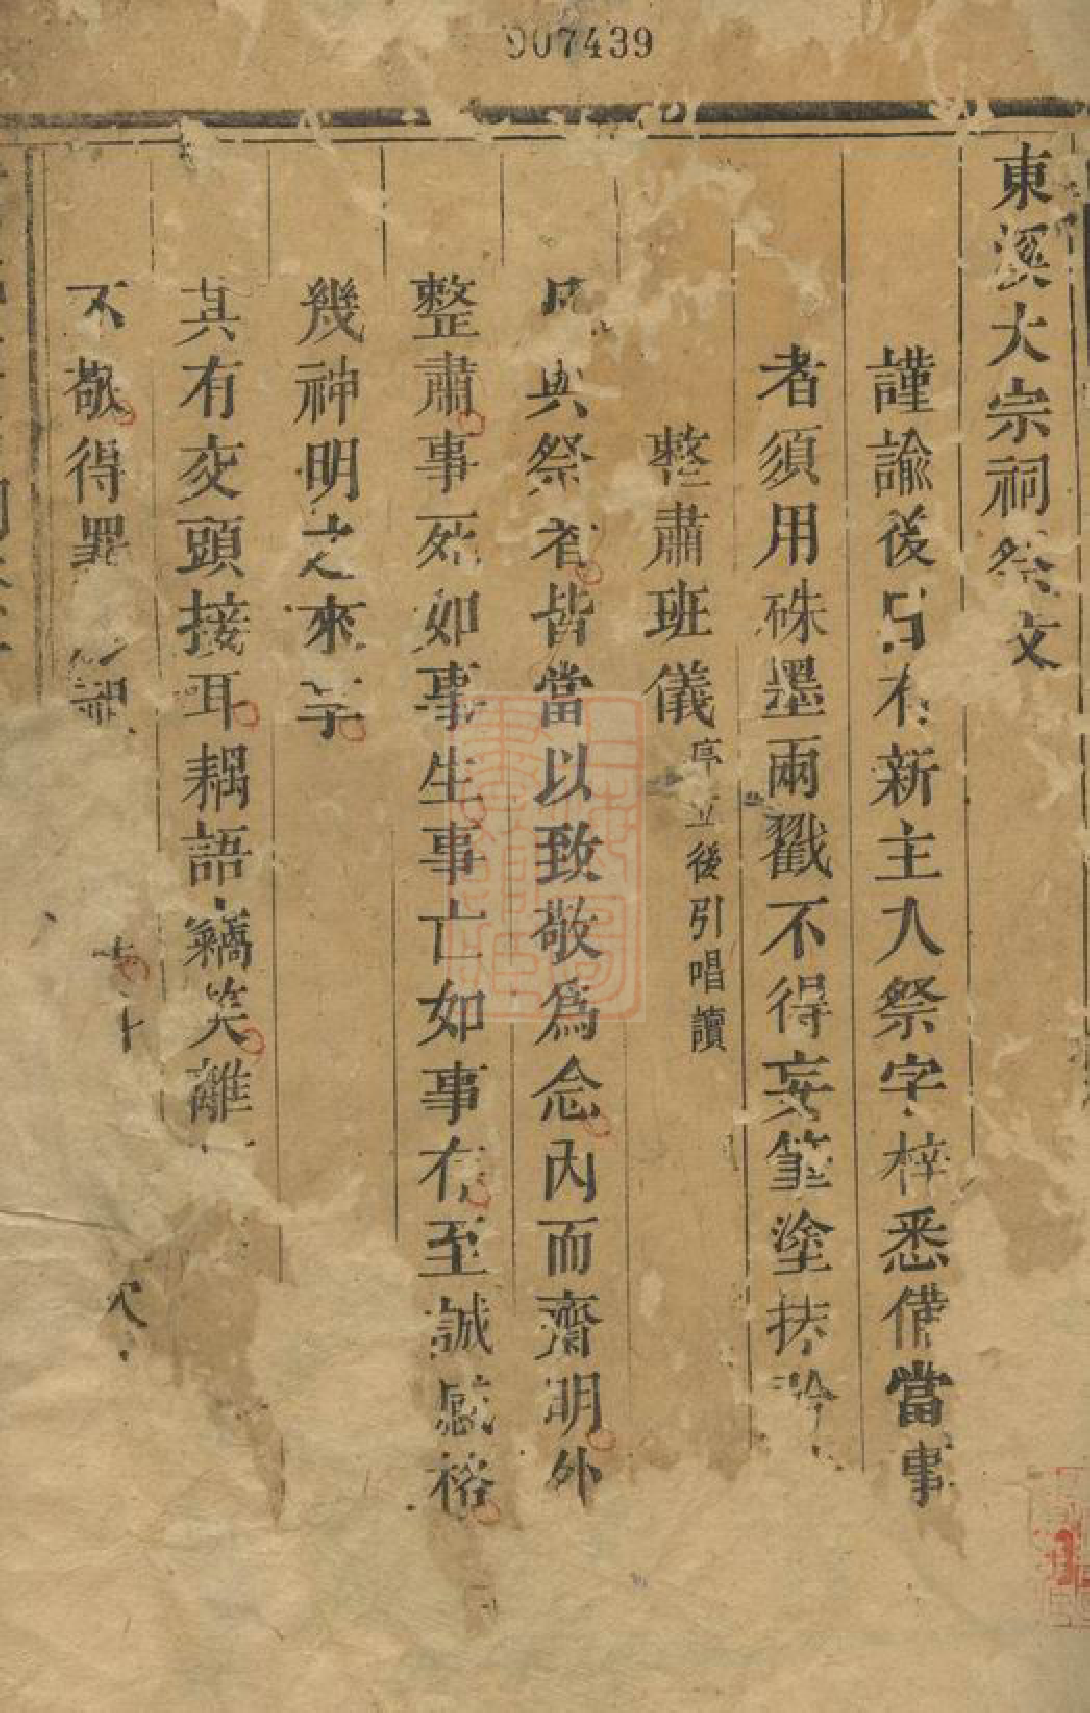 907439
東溪大宗祠祭文
謹諭後日有新主入祭字梓悉備當事
者須用硃墨兩戳不得妄筆塗抹
整肅班儀序立後引唱讀
凡與祭者皆當以致敬為念內而齋明外
整肅事死如事生事亡如事存至誠感格
幾神明之來享
其有交頭接耳耦語竊笑離
不敬得罪